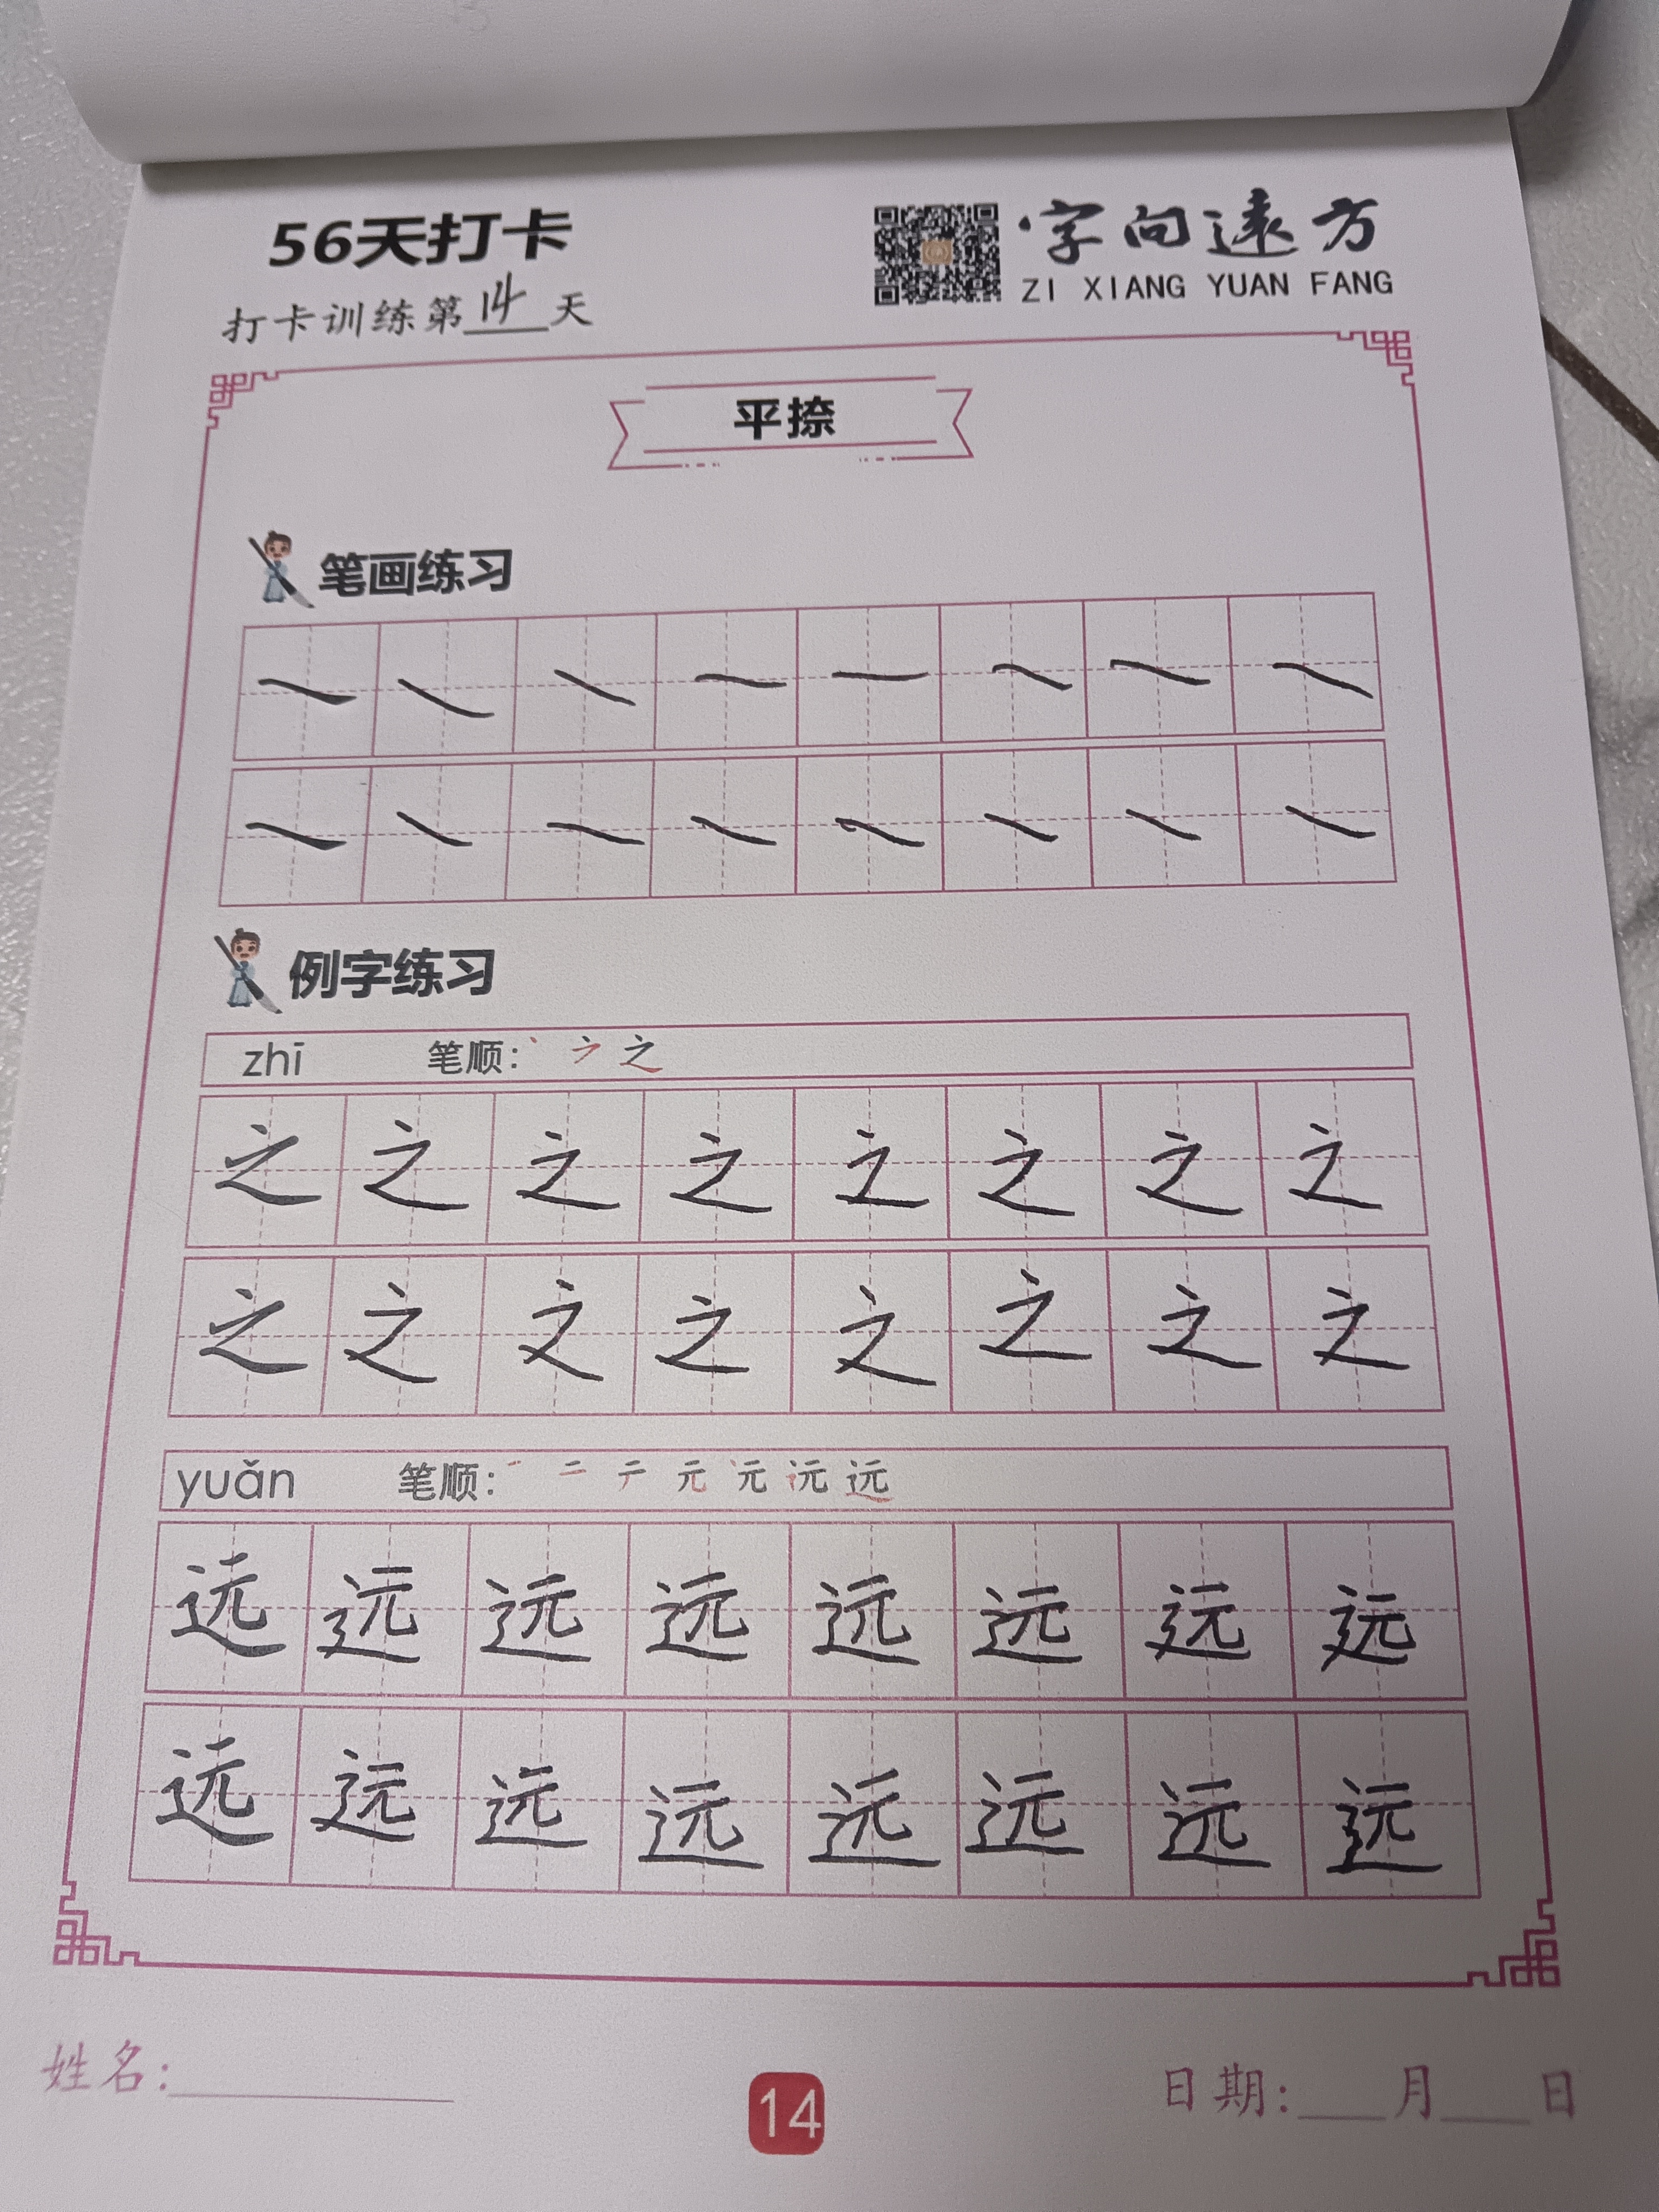 56天打卡
字向遠方
ZI XIANG YUAN FANG
打卡训练第14天
平捺
笔画练习
例字练习
zhī 笔顺: 丶 ㇇ 之
之 之 之 之 之 之 之 之
之 之 之 之 之 之 之 之
yuǎn 笔顺: 一 二 テ 元 远
远 远 远 远 远 远 远 远
远 远 远 远 远 远 远 远
姓名:
14
日期: 月 日